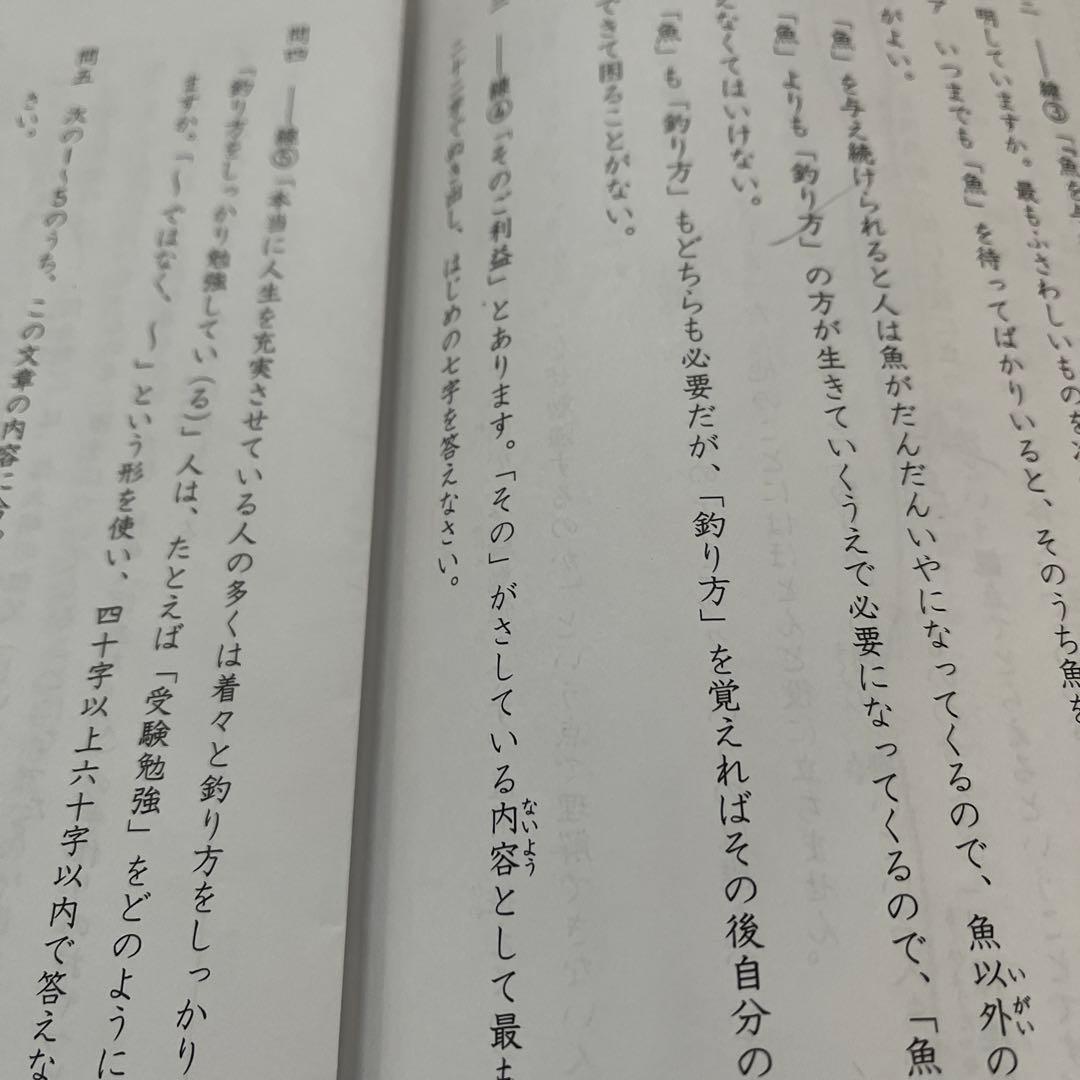 ――線③「「魚を与
明していますか。最もふさわしいものを次
ア いつまでも「魚」を待ってばかりいると、そのうち魚を
がよい。
「魚」を与え続けられると人は魚がだんだんいやになってくるので、魚以外の
「魚」よりも「釣り方」の方が生きていくうえで必要になってくるので、「魚
えなくてはいけない。
「魚」も「釣り方」もどちらも必要だが、「釣り方」を覚えればその後自分の
できて困ることがない。
――線④「そのご利益」とあります。「その」がさしている内容として最も
でぬき出し、はじめの七字を答えなさい。
問四 ――線⑤「本当に人生を充実させている人の多くは着々と釣り方をしっかり
「釣り方をしっかり勉強してい(る)」人は、たとえば「受験勉強」をどのように
ますか。「～ではなく、～」という形を使い、四十字以上六十字以内で答えな
問五 次の1～5のうち、この文章の内容に合
さい。